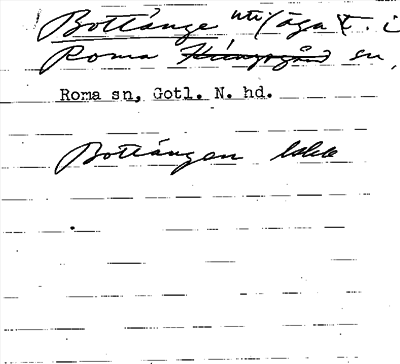 Bottänge uti/äga t. i
Roma Kungsgård sn,
Roma sn, Gotl. N. hd.
Bottängen